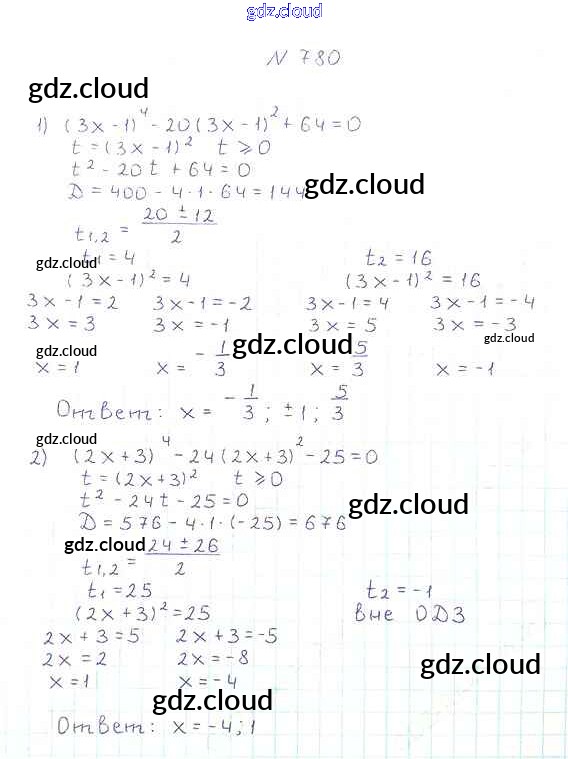 gdz.cloud
N 780
gdz.cloud
1) (3x-1)⁴ - 20(3x-1)² + 64 = 0
t = (3x-1)² t ⩾ 0
t² - 20t + 64 = 0
D = 400 - 4·1·64 = 144 gdz.cloud
t₁,₂ = (20 ± 12)/2
gdz.cloud t₁ = 4 t₂ = 16
(3x-1)² = 4 (3x-1)² = 16
3x-1 = 2 3x-1 = -2 3x-1 = 4 3x-1 = -4
3x = 3 3x = -1 3x = 5 3x = -3
gdz.cloud gdz.cloud gdz.cloud
x = 1 x = -1/3 x = 5/3 x = -1
Ответ: x = -1/3; ±1; 5/3
gdz.cloud
2) (2x+3)⁴ - 24(2x+3)² - 25 = 0
t = (2x+3)² t ⩾ 0
t² - 24t - 25 = 0
gdz.cloud
D = 576 - 4·1·(-25) = 676
gdz.cloud
t₁,₂ = (24 ± 26)/2
t₁ = 25 t₂ = -1
(2x+3)² = 25 вне ОДЗ
2x+3 = 5 2x+3 = -5
2x = 2 2x = -8 gdz.cloud
x = 1 x = -4
gdz.cloud
Ответ: x = -4; 1